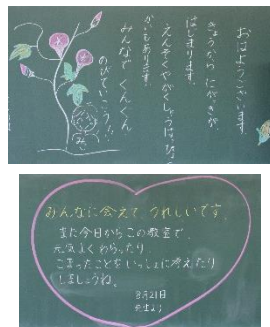 おはようございます。
きょうから にがっきが
はじまります。
えんそくや がくしゅうはっぴょう
かいもあります。
みんなで ぐんぐん
のびていこう！
みんなに会えて、うれしいです。
また今日からこの教室で、
元気よくわらったり
こまったことをいっしょに考えたり
しましょうね。
8月21日
先生より